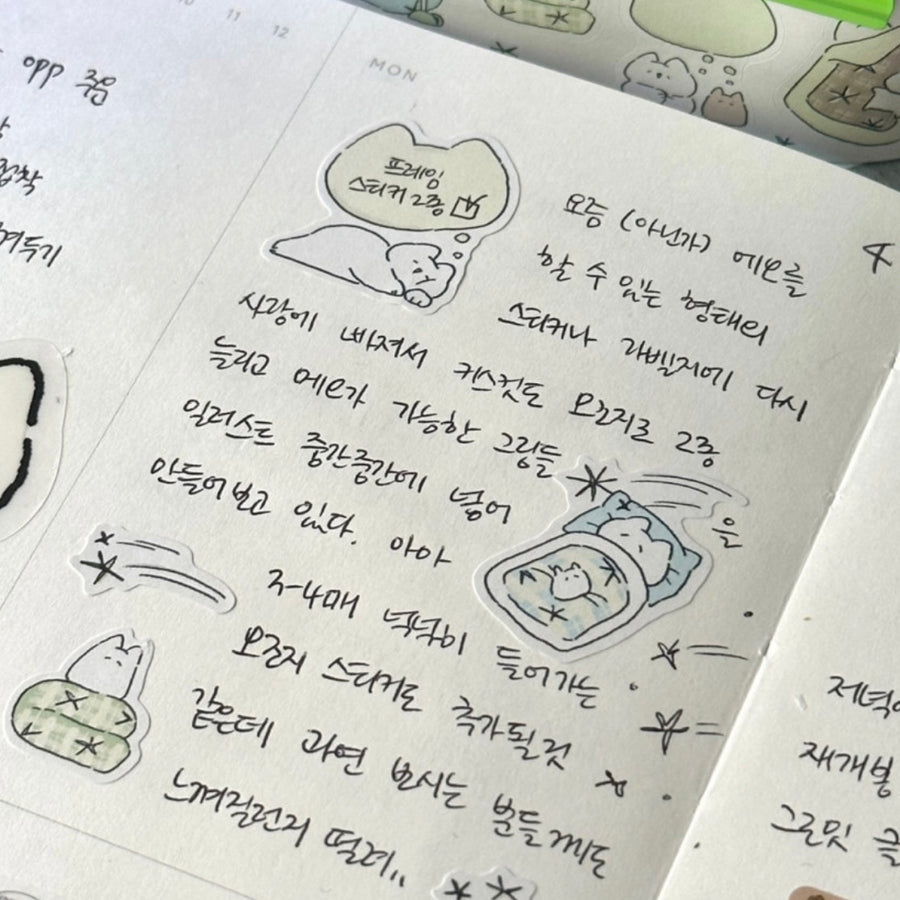 11
12
MON
opp 주음
접착
겨두기
프레임
스티커 2종
요즘 (아닌가) 메모를
할 수 있는 형태의
스티커나 라벨지에 다시
사랑에 빠져서 키스컷도 모조지로 2종
늘리고 메모가 가능한 그림들을
일러스트 중간중간에 넣어
만들어보고 있다. 아마
3-4매 넉넉히 들어가는
모조지 스티커도 추가될것
같은데 과연 보시는 분들께도
느껴질런지 떨려..
저녁
재개봉
그린밋